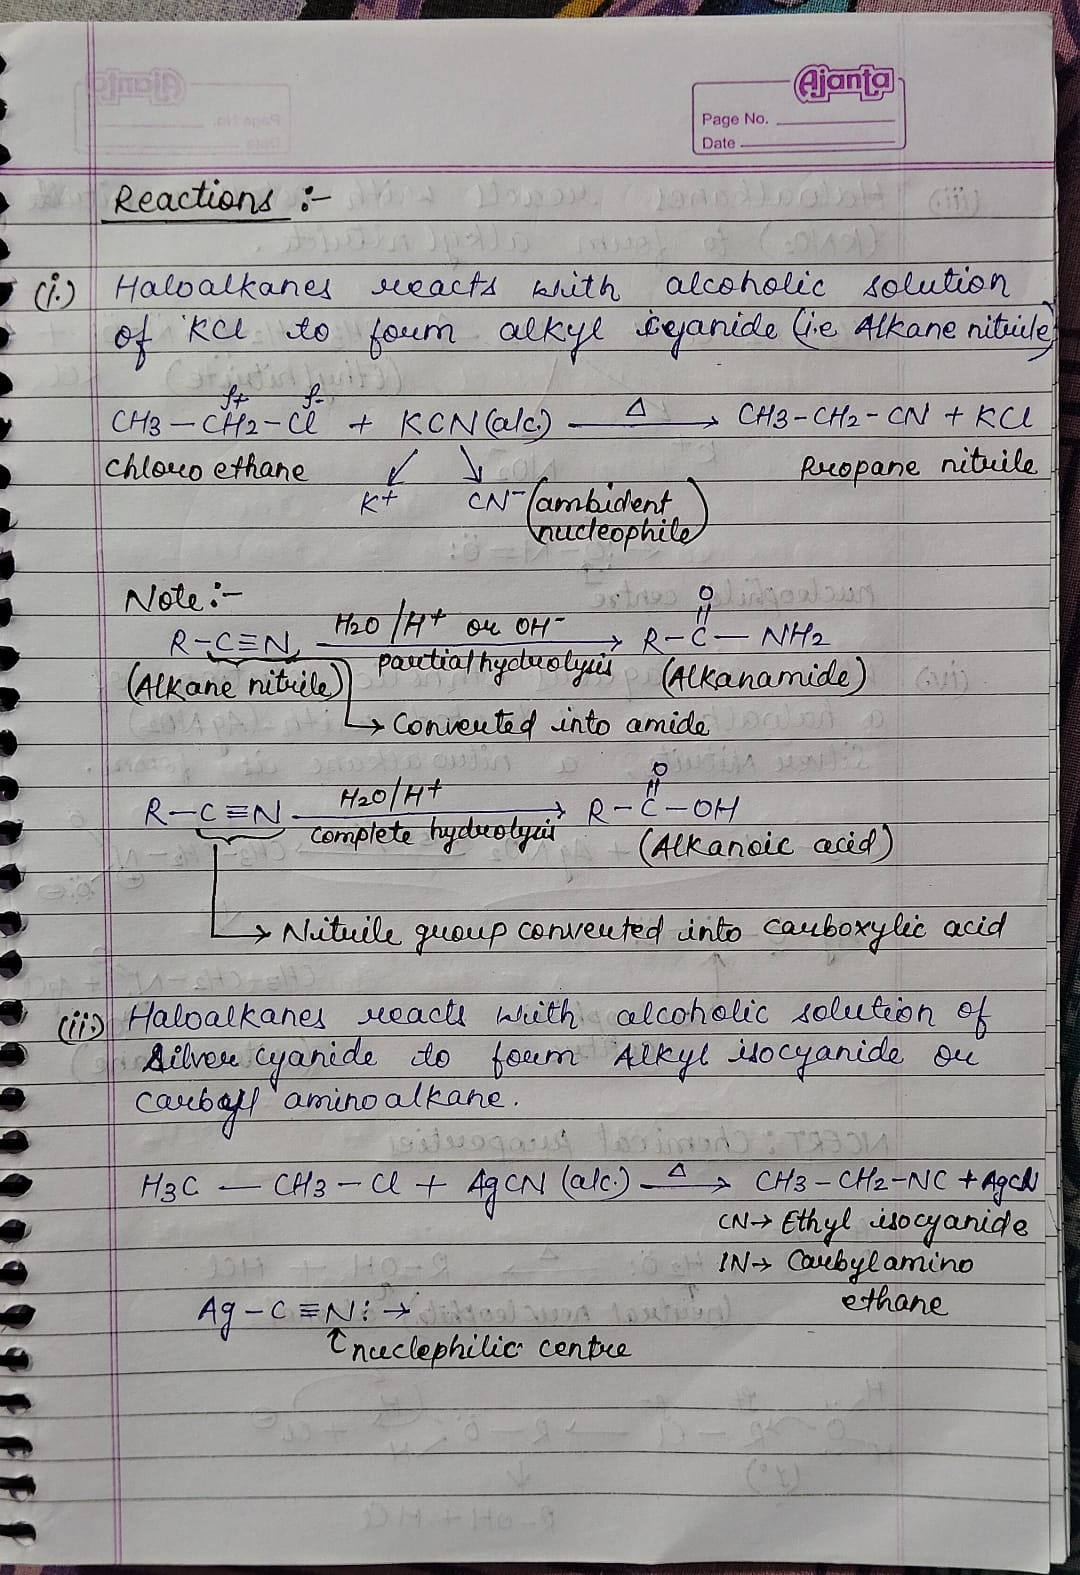 Ajanta
Page No.
Date
Reactions :-
(i.) Haloalkanes reacts with alcoholic solution
of KCl to form alkyl cyanide (i.e Alkane nitrile)
CH3 — CH2 — Cl + KCN (alc.) —Δ→ CH3 - CH2 - CN + KCl
δ+ δ-
chloro ethane Propane nitrile
K+ CN- (ambident
nucleophile)
Note :-
O
R - C ≡ N H2O / H+ or OH- → R - C — NH2
(Alkane nitrile) partial hydrolysis (Alkanamide)
→ Converted into amide
O
R — C ≡ N H2O/H+ → R - C - OH
complete hydrolysis (Alkanoic acid)
→ Nitrile group converted into carboxylic acid
(ii.) Haloalkanes reacts with alcoholic solution of
Silver cyanide to form Alkyl isocyanide or
amino alkane.
H3C — CH3 - Cl + AgCN (alc.) —Δ→ CH3 - CH2 - NC +
CN → Ethyl isocyanide
IN → Carbylamino
ethane
Ag - C ≡ N: →
↑ nuclephilic centre